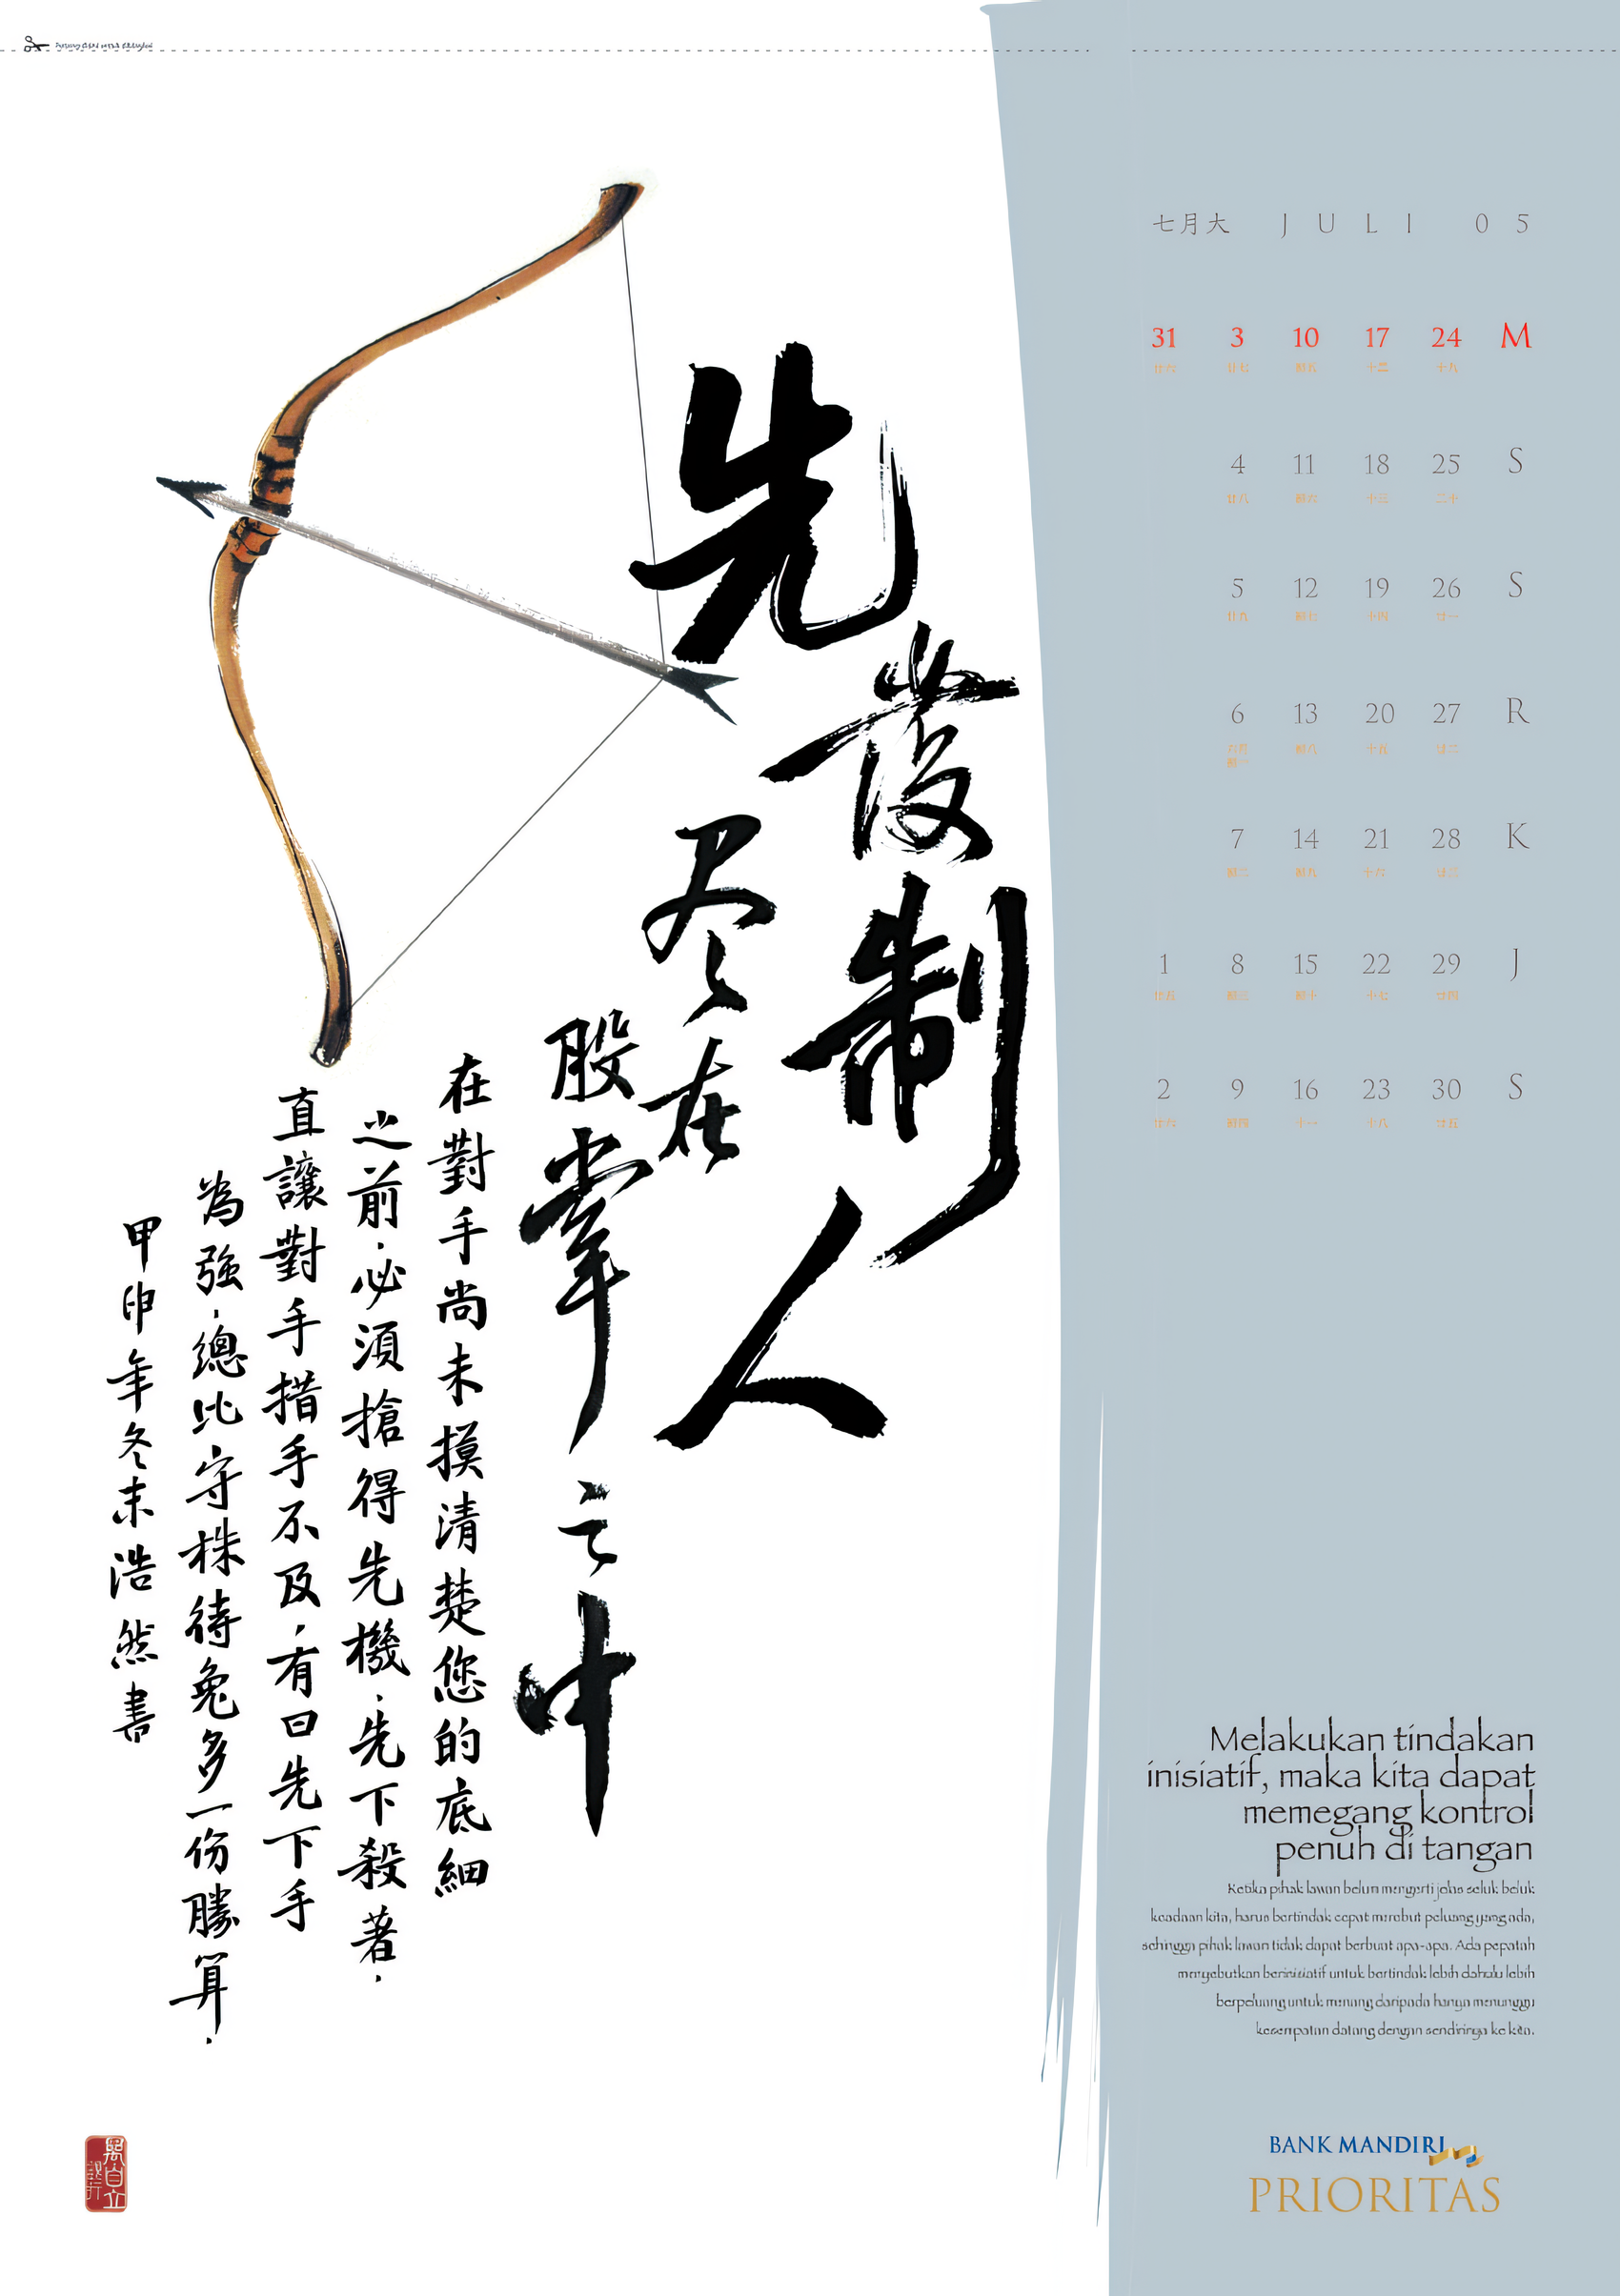 七月大 JULI 05
31 3 10 17 24 M
廿六 廿七 初五 十二 十八
4 11 18 25 S
廿八 初六 十三 二十
5 12 19 26 S
廿九 初七 十四 廿一
6 13 20 27 R
初一 初八 十五 廿二
7 14 21 28 K
初二 初九 十六 廿三
1 8 15 22 29 J
廿五 初三 初十 十七 廿四
2 9 16 23 30 S
廿六 初四 十一 十八 廿五
先發制人
尽在
股掌之中
在對手尚未摸清楚您的底細
之前,必須搶得先機,先下殺著,
直讓對手措手不及,有曰先下手
為強,總比守株待兔多一份勝算.
甲申年冬末浩然書
Melakukan tindakan
inisiatif, maka kita dapat
memegang kontrol
penuh di tangan
Ketika pihak lawan belum mengerti jelas seluk beluk
keadaan kita, harus bertindak cepat merebut peluang yang ada,
sehingga pihak lawan tidak dapat berbuat apa-apa. Ada pepatah
menyebutkan berinisiatif untuk bertindak lebih dahulu lebih
berpeluang untuk menang daripada hanya menunggu
kesempatan datang dengan sendirinya ke kita.
BANK MANDIRI
PRIORITAS